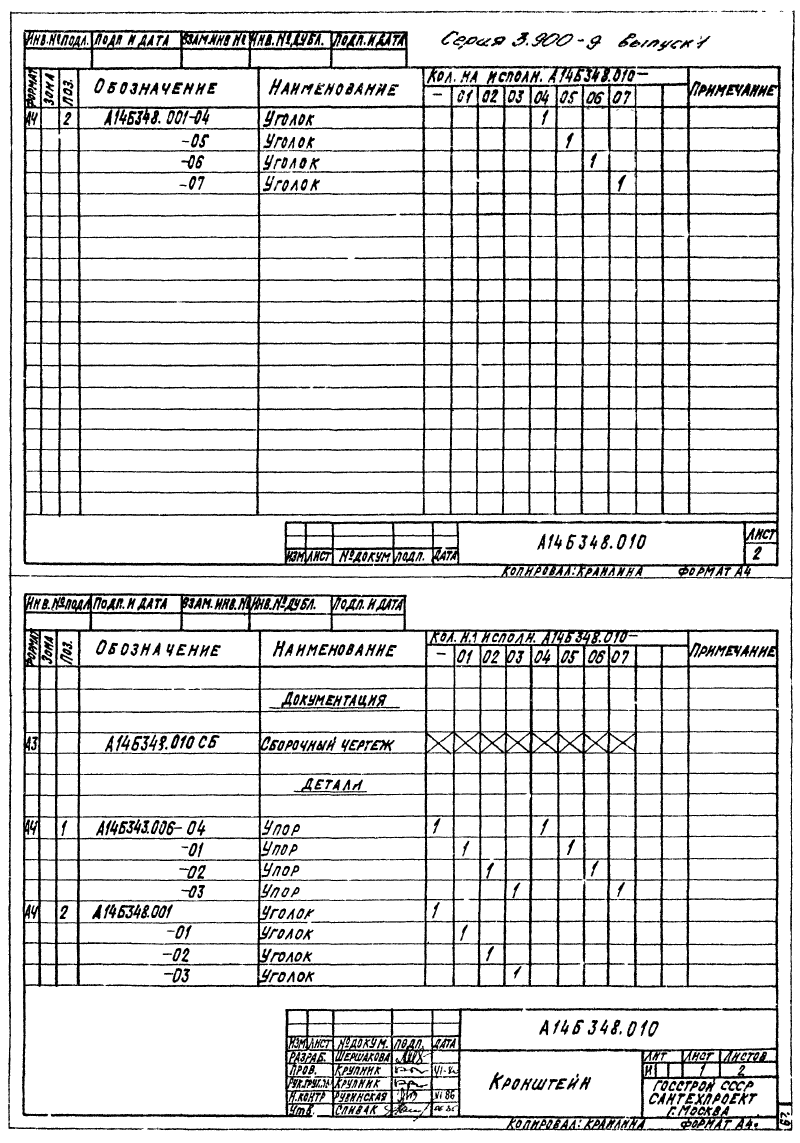 Серия 3.900-9 выпуск 1
Инв.№подл. Подп. и дата Взам.инв № Инв.№дубл. Подп. и дата
Формат Зона Поз. Обозначение Наименование Кол. на исполн. А14Б348.010— Примечание
— 01 02 03 04 05 06 07
А4 2 А14Б348.001-04 Уголок 1
-05 Уголок 1
-06 Уголок 1
-07 Уголок 1
А14Б348.010 Лист
2
Изм Лист №докум Подп. Дата
Копировал: Краилина Формат А4
Инв.№подл Подп. и дата Взам. инв.№ Инв.№дубл. Подп. и дата
Формат Зона Поз. Обозначение Наименование Кол. на исполн. А14Б348.010— Примечание
— 01 02 03 04 05 06 07
Документация
А3 А14Б348.010 СБ Сборочный чертеж
Детали
А4 1 А14Б343.006-04 Упор 1 1
-01 Упор 1 1
-02 Упор 1 1
-03 Упор 1 1
А4 2 А14Б348.001 Уголок 1
-01 Уголок 1
-02 Уголок 1
-03 Уголок 1
А14Б348.010
Изм Лист №докум. Подп. Дата
Разраб. Шершакова
Пров. Крупник
Рук.груп. Крупник
Н.контр Рувинская VI 86
Утв. Спивак
Кронштейн
Лит Лист Листов
И 1 2
Госстрой СССР
Сантехпроект
г. Москва
Копировал: Краилина Формат А4